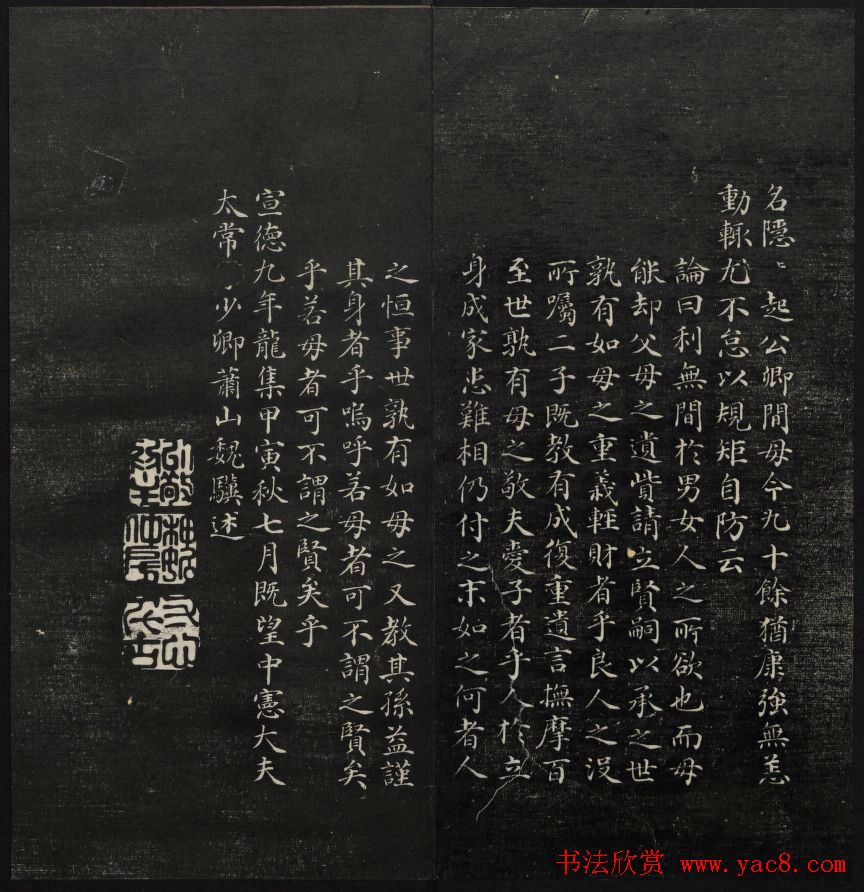 名隱〻起公卿間母今九十餘猶康強無恙
動輒尤不怠以規矩自防云
論曰利無間於男女人之所欲也而母
能却父母之遺貲請立賢嗣以承之世
孰有如母之重義輕財者乎良人之沒
所囑二子既教有成復重遺言撫摩百
至世孰有母之敬夫愛子者乎人於立
身成家患難相仍付之末如之何者人
之恒事世孰有如母之又教其孫益謹
其身者乎嗚呼若母者可不謂之賢矣
乎若母者可不謂之賢矣乎
宣德九年龍集甲寅秋七月既望中憲大夫
太常少卿蕭山魏驥述
书法欣赏 www.yac8.com